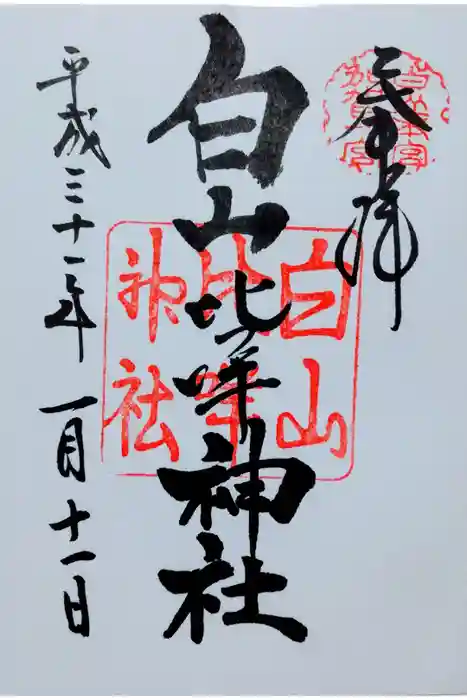 奉拝
白山比咩神社
白山
比咩
神社
平成三十一年一月十一日